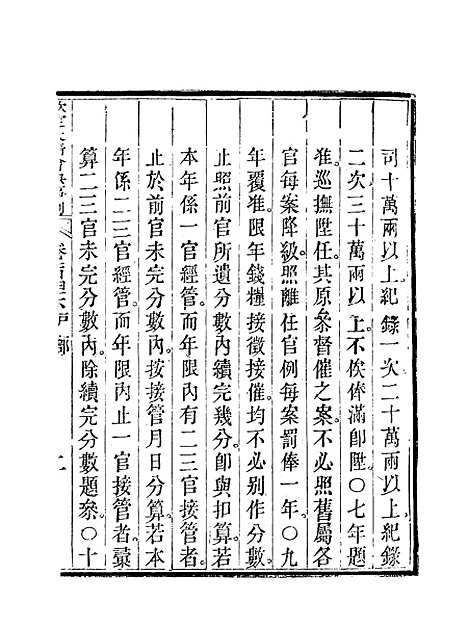 司十萬兩以上紀錄一次二十萬兩以上紀錄
二次三十萬兩以上不俟俸滿卽陞〇七年題
准巡撫陞任其原叅督催之案不必照舊屬各
官每案降級照離任官例每案罰俸一年〇九
年覆准限年錢糧接徵接催均不必別作分數
止照前官所遺分數內續完幾分卽與扣算若
本年係一官經管而年限內有二三官接管者
止於前官未完分數內按接管月日分算若本
年係二三官經管而年限內止一官接管者彚
算二三官未完分數內除續完分數題叅〇十
欽定大清會典事例 卷一百四十六戶部 二